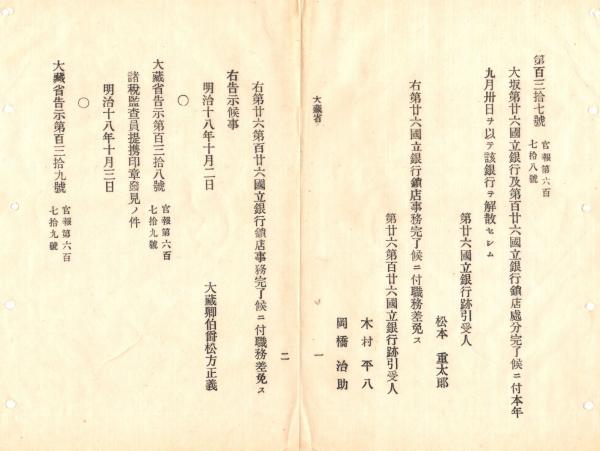 第百三拾七號
官報第六百
七拾八號
大坂第廿六國立銀行及第百廿六國立銀行鎖店處分完了候ニ付本年
九月卅日ヲ以テ該銀行ヲ解散セシム
第廿六國立銀行跡引受人
松本重太郎
右第廿六國立銀行鎖店事務完了候ニ付職務差免ス
第廿六第百廿六國立銀行跡引受人
木村平八
岡橋治助
一
大藏省
二
右第廿六第百廿六國立銀行鎖店事務完了候ニ付職務差免ス
右告示候事
明治十八年十月二日
大藏卿伯爵松方正義
〇
大藏省告示第百三拾八號
官報第六百
七拾九號
諸税監査員提携印章發見ノ件
明治十八年十月三日
〇
大藏省告示第百三拾九號
官報第六百
七拾九號